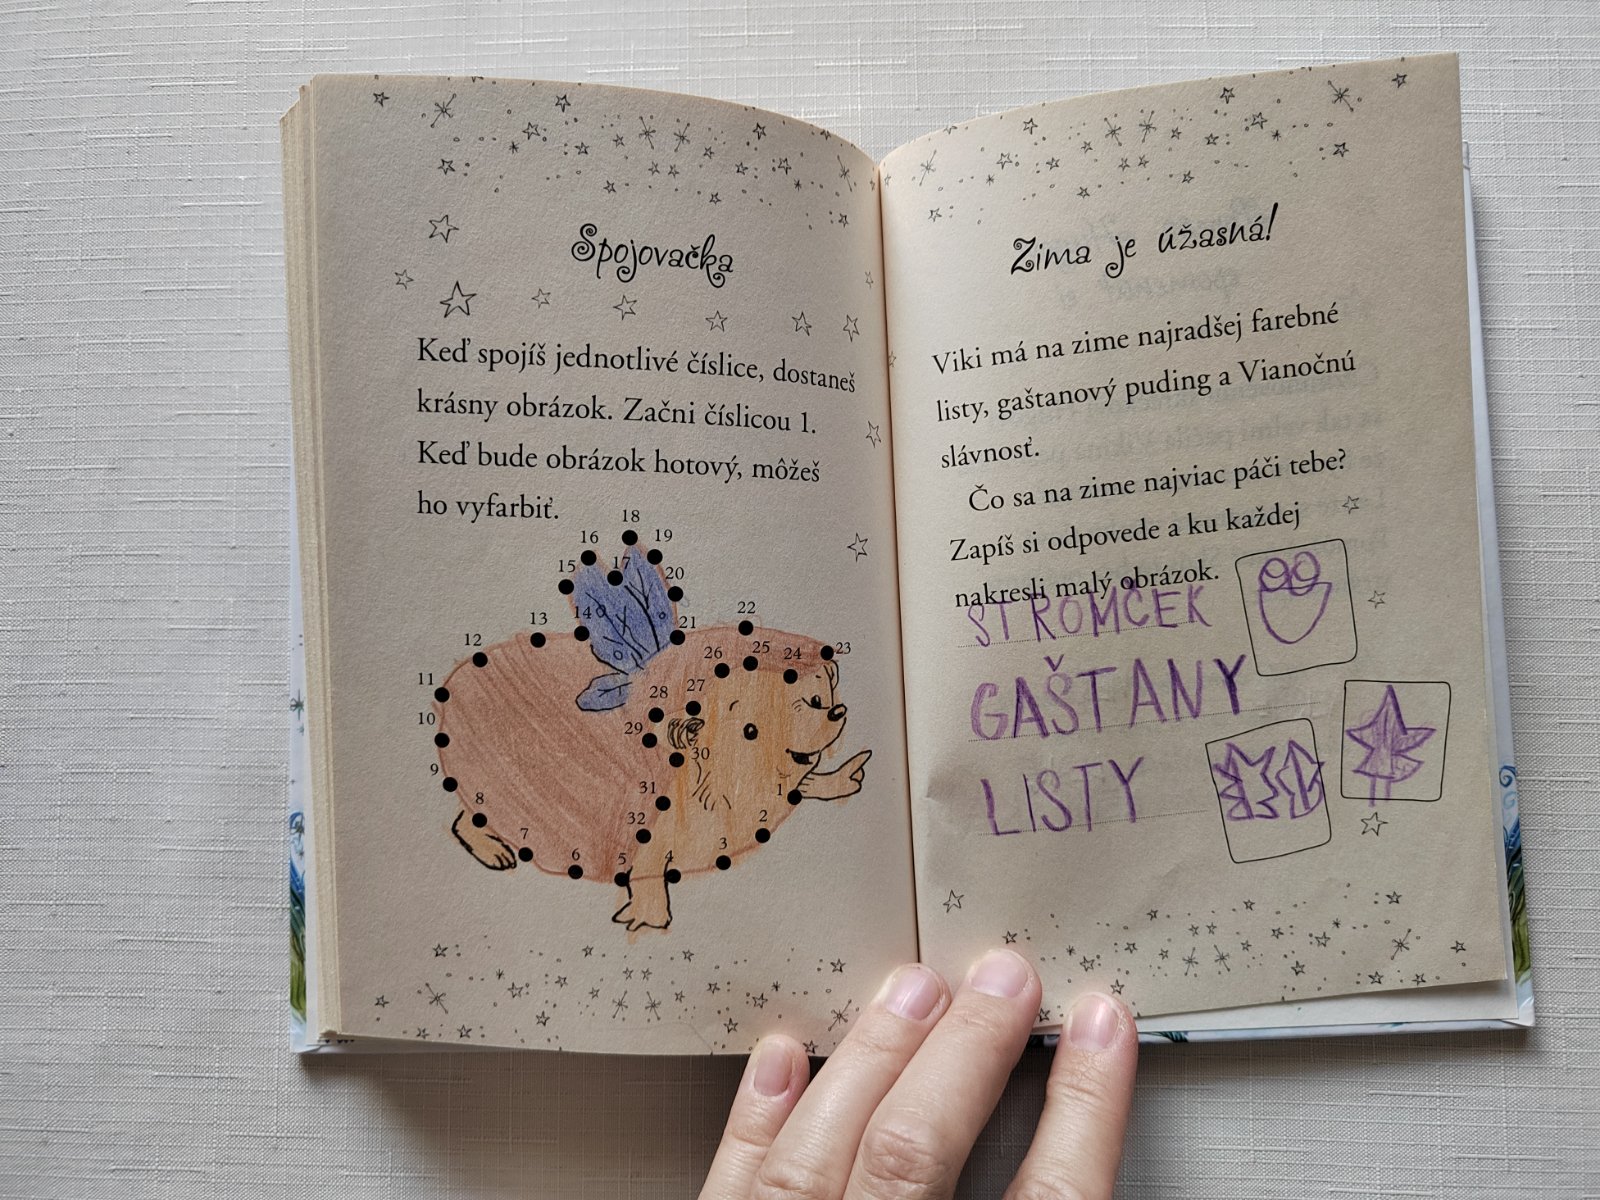 Spojovačka
Keď spojíš jednotlivé číslice, dostaneš
krásny obrázok. Začni číslicou 1.
Keď bude obrázok hotový, môžeš
ho vyfarbiť.
18
16
19
17
15
20
14
22
13
21
12
23
25
24
26
11
27
28
10
29
30
9
1
31
8
32
2
7
3
6
5
4
Zima je úžasná!
Viki má na zime najradšej farebné
listy, gaštanový puding a Vianočnú
slávnosť.
Čo sa na zime najviac páči tebe?
Zapíš si odpovede a ku každej
nakresli malý obrázok.
STROMČEK
GAŠTANY
LISTY